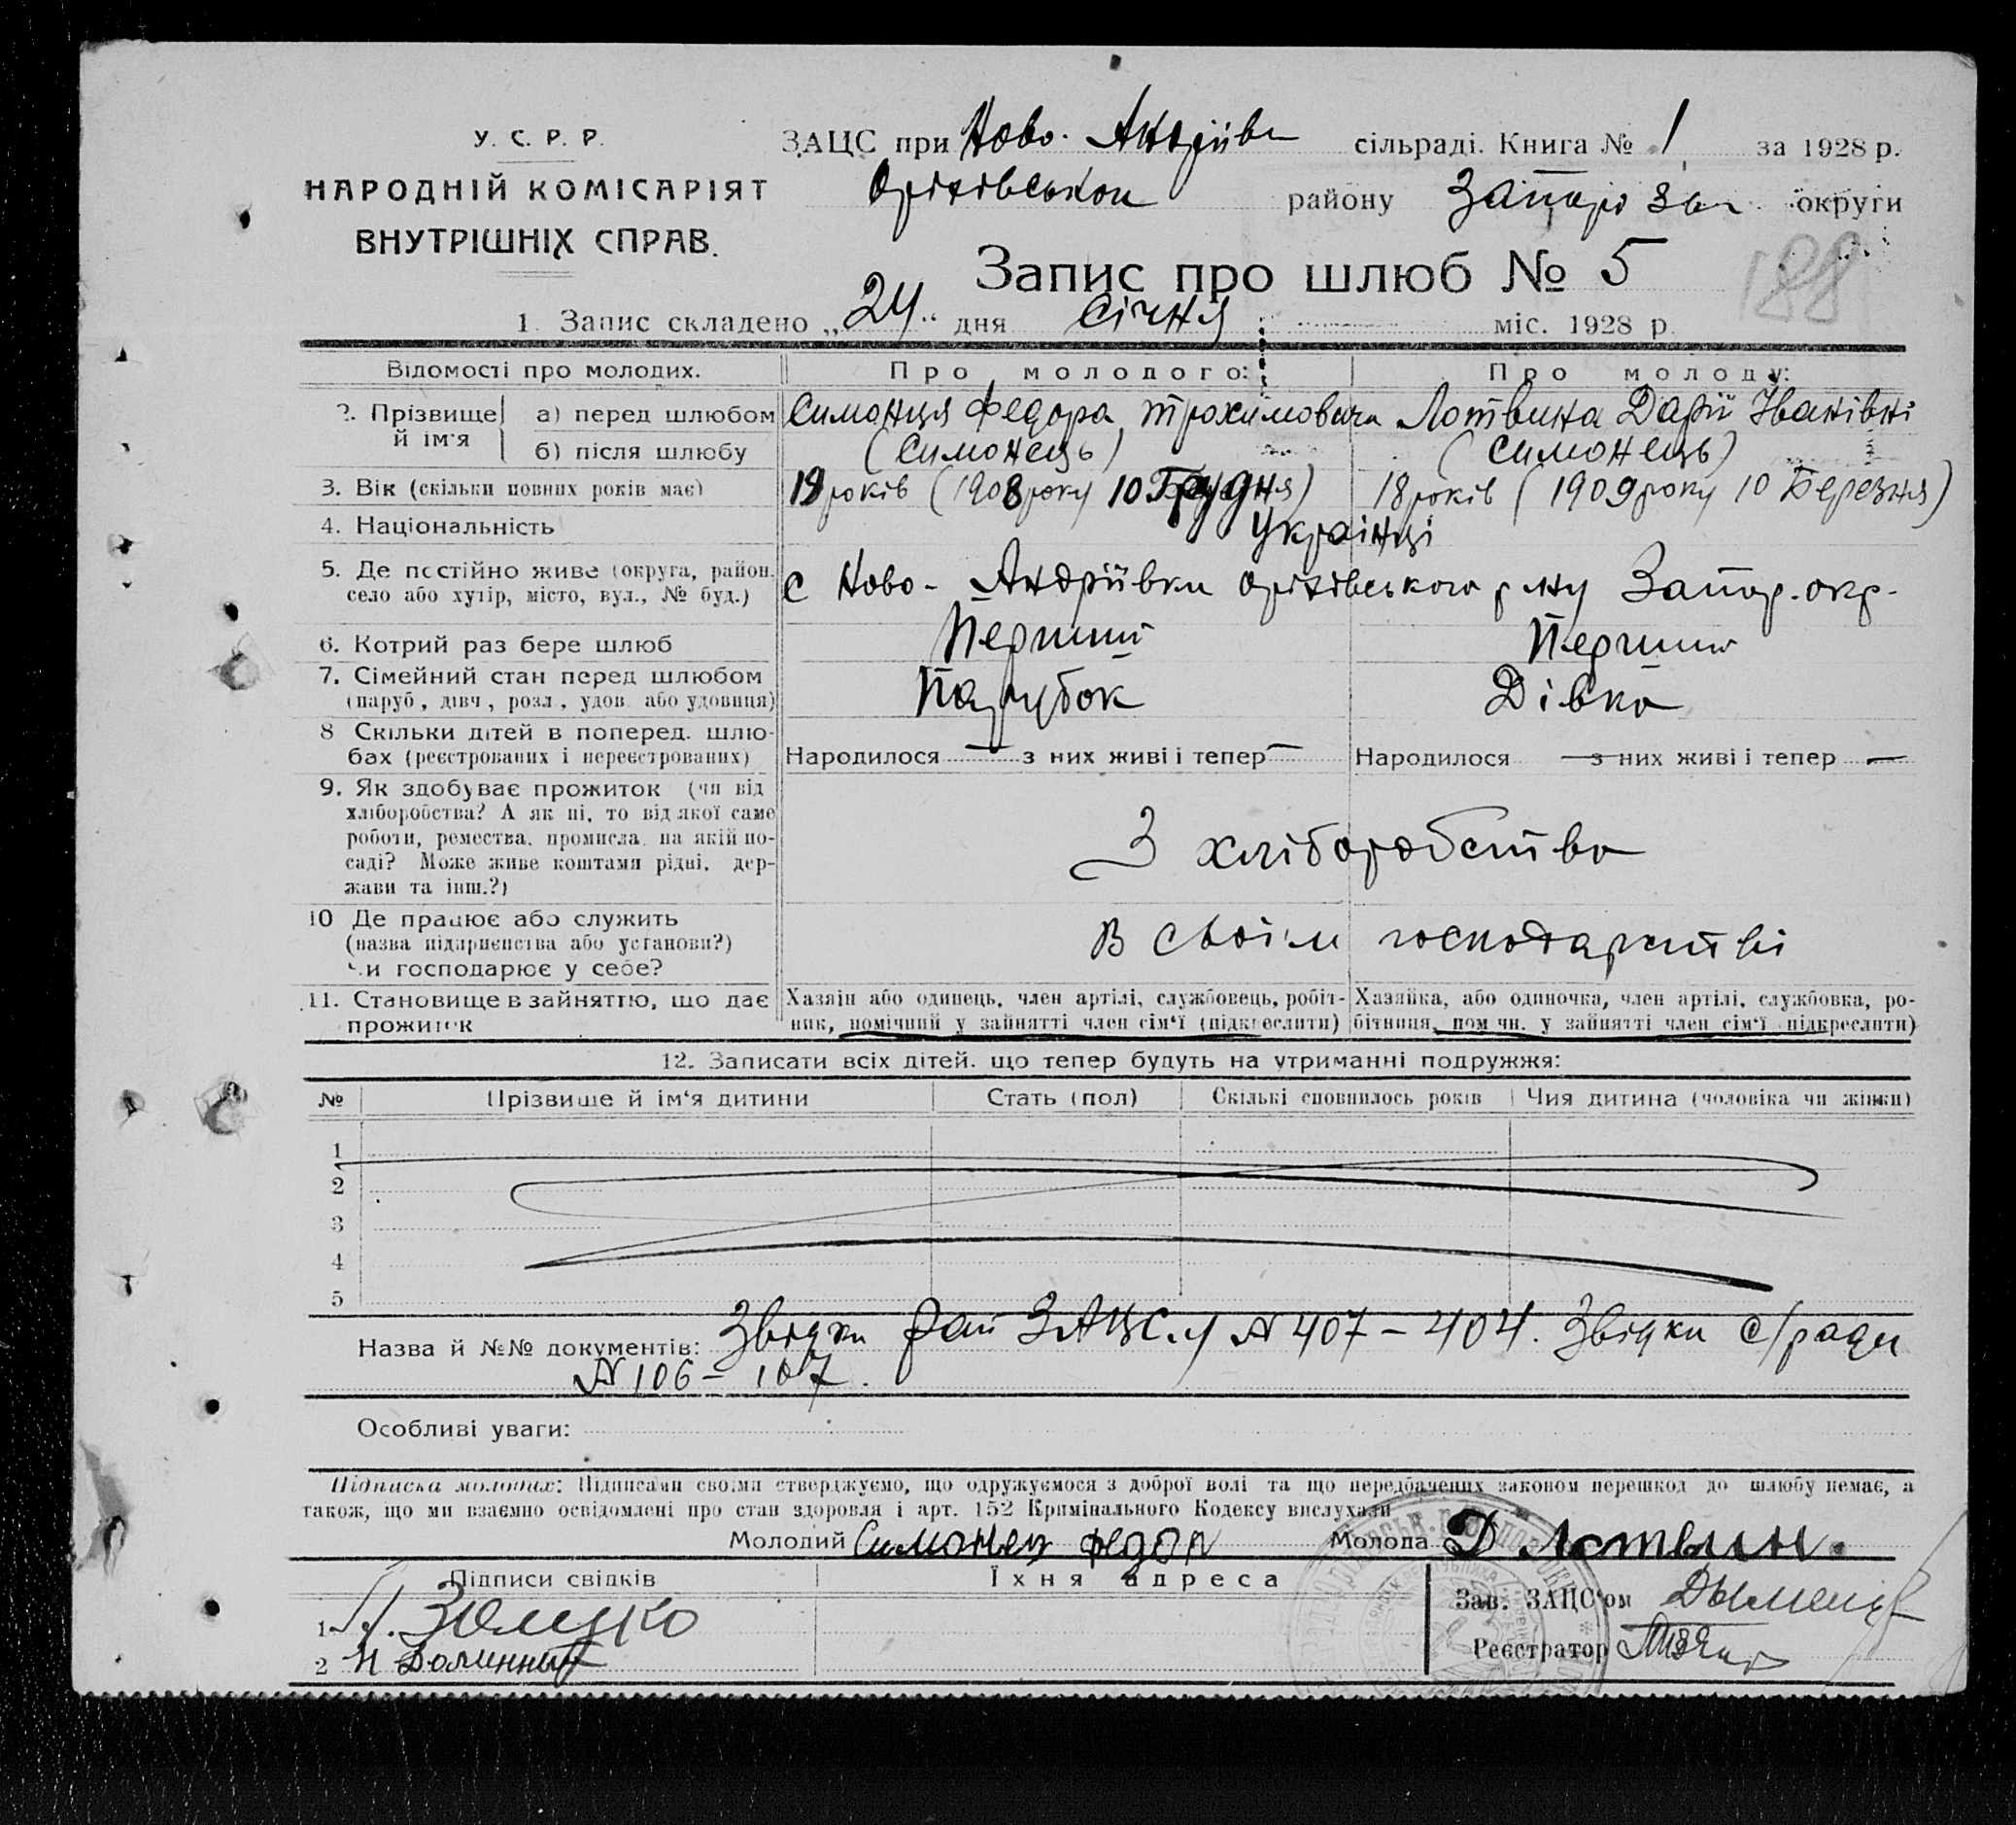 У. С. Р. Р.
НАРОДНІЙ КОМІСАРІЯТ
ВНУТРІШНІХ СПРАВ.
ЗАЦС при Ново-Андріїв сільраді. Книга № 1 за 1928 р.
Оріхівськои району Запоріз округи
188
Запис про шлюб № 5
1. Запис складено „24“ дня Січня міс. 1928 р.
Відомості про молодих. Про молодого: Про молоду:
2. Прізвище й ім'я а) перед шлюбом Симонця Федора Трохимовича Лотвина Дарії Іванівні
б) після шлюбу (Симонець) (Симонець)
3. Вік (скільки повних років має) 19 років (1908 року 10 Грудня) 18 років (1909 року 10 Березня)
4. Національність Українці
5. Де постійно живе (округа, район,
село або хутір, місто, вул., № буд.) с Ново-Андріївки Оріхівського р-ну Запор. окр.
6. Котрий раз бере шлюб Перший Перший
7. Сімейний стан перед шлюбом
(паруб, дівч, розл, удов. або удовиця) Парубок Дівка
8 Скільки дітей в поперед. шлю-
бах (реєстрованих і нереєстрованих) Народилося — з них живі і тепер — Народилося — з них живі і тепер —
9. Як здобуває прожиток (чи від
хліборобства? А як ні, то від якої саме
роботи, ремества, промисла, на якій по-
саді? Може живе коштами рідні, дер-
жави та інш.?)
З хліборобства
10 Де працює або служить
(назва підприємства або установи?)
чи господарює у себе?
В своїм господарстві
11. Становище в зайняттю, що дає
прожиток
Хазяїн або одинець, член артілі, службовець, робіт-
ник, помічний у зайнятті член сім'ї (підкреслити)
Хазяйка, або одиночка, член артілі, службовка, ро-
бітниця, помічн. у зайнятті член сім'ї підкреслити)
12. Записати всіх дітей, що тепер будуть на утриманні подружжя:
№ Прізвище й ім'я дитини Стать (пол) Скількі сповнилось років Чия дитина (чоловіка чи жінки)
1
2
3
4
5
Назва й №№ документів: Звідки рай ЗАЦС.у № 407-404. Звідки с/ради
№ 106-107.
Особливі уваги:
Підписка молодих: Підписами своїми стверджуємо, що одружуємося з доброї волі та що передбачених законом перешкод до шлюбу немає, а
також, що ми взаємно освідомлені про стан здоровля і арт. 152 Кримінального Кодексу вислухали
Молодий Симонец Федор Молода Д Лотвин.
Підписи свідків Їхня адреса
Зав. ЗАЦС'ом
1
Реєстратор
2